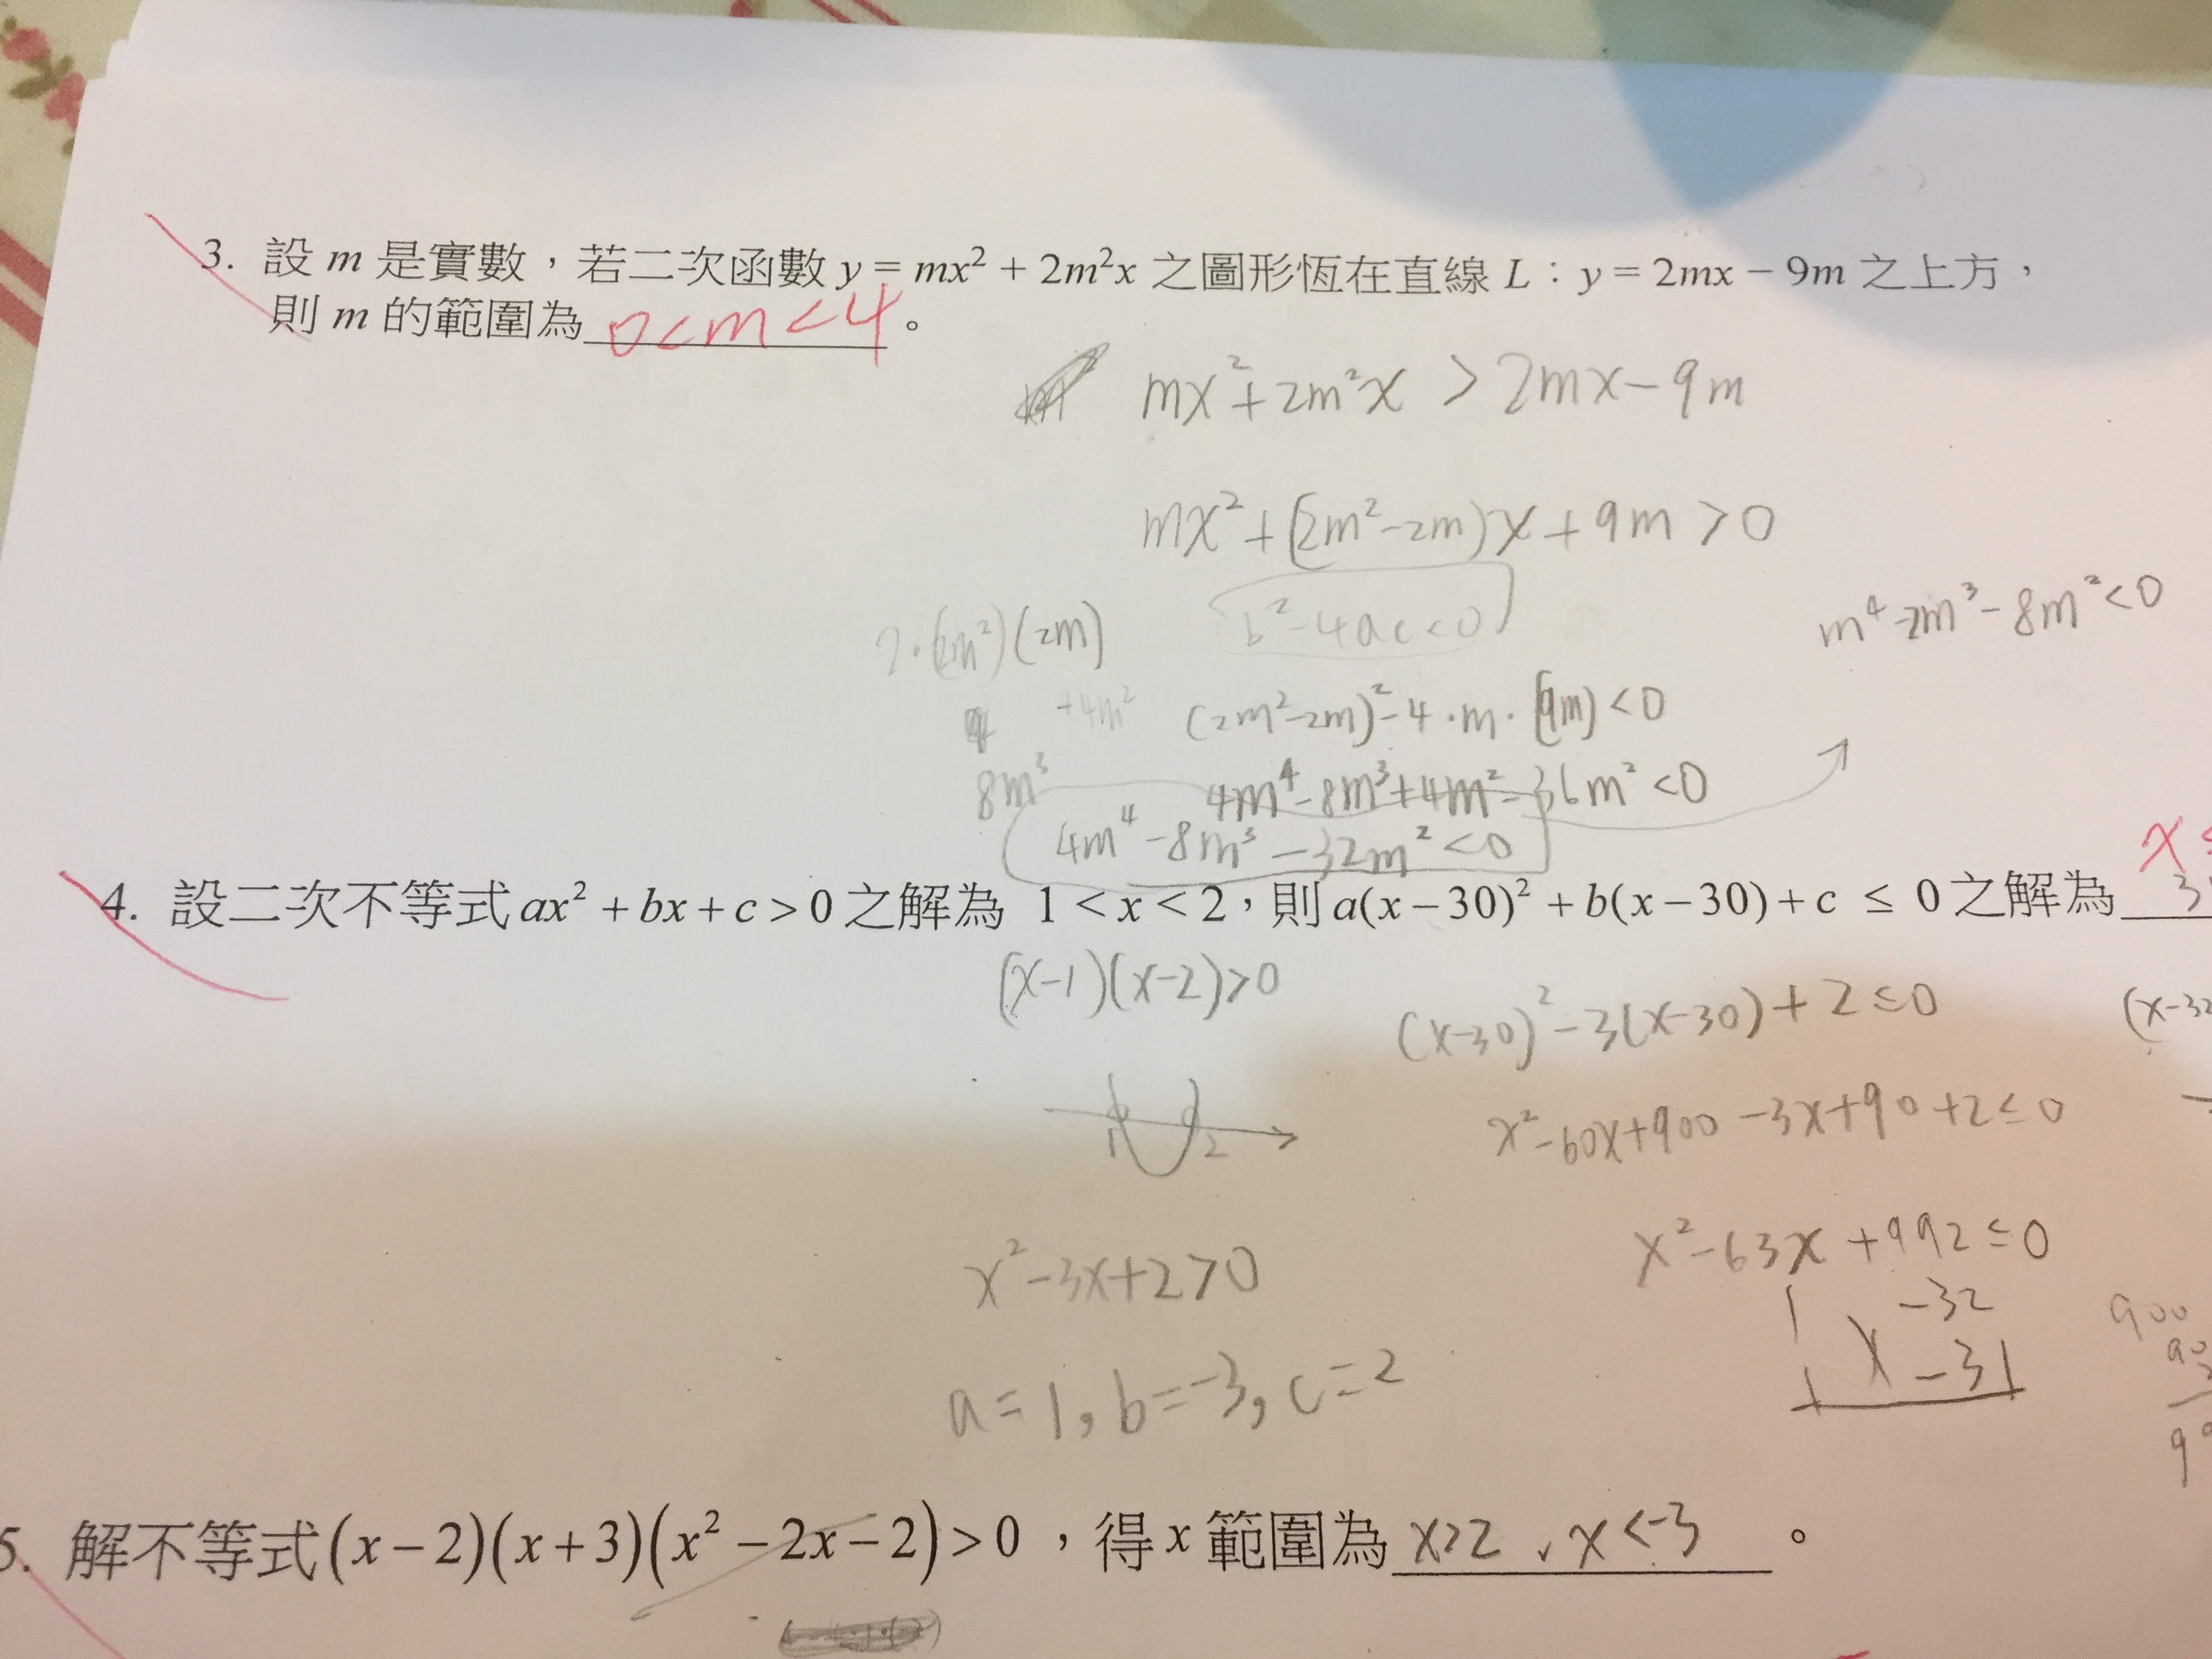 3. 設 m 是實數，若二次函數 y = mx² + 2m²x 之圖形恆在直線 L：y = 2mx − 9m 之上方，
則 m 的範圍為 0<m<4 。
mx²+2m²x > 2mx−9m
mx²+(2m²−2m)x+9m>0
2·(2m²)(2m)
b²−4ac<0
m⁴−2m³−8m²<0
+4m²
(2m²−2m)²−4·m·(9m)<0
8m³
4m⁴−8m³+4m²−36m²<0
4m⁴−8m³−32m²<0
4. 設二次不等式 ax² + bx + c > 0 之解為 1 < x < 2，則 a(x − 30)² + b(x − 30) + c ≤ 0 之解為
(x−1)(x−2)>0
(x−30)²−3(x−30)+2≤0
(x−32
1 2
x²−60x+900−3x+90+2≤0
x²−3x+2>0
x²−63x+992≤0
1 −32
1 −31
900
a=1, b=−3, c=2
5. 解不等式 (x − 2)(x + 3)(x² − 2x − 2) > 0 ，得 x 範圍為 x>2 、x<−3 。